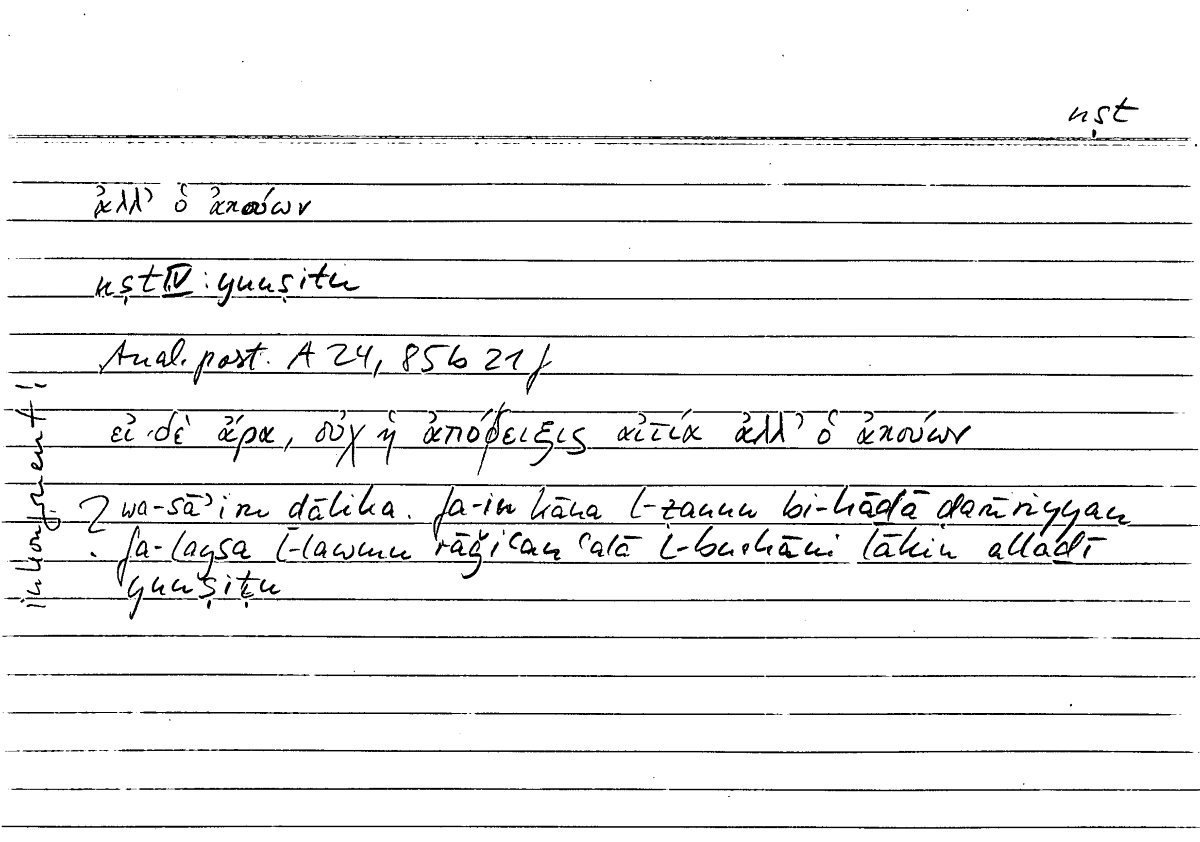 nṣt
ἀλλ’ ὁ ἀκούων
nṣt IV : yunṣitu
Anal. post. A 24, 85b 21 f
εἰ δὲ ἄρα, οὐχ ἡ ἀπόδειξις αἰτία ἀλλ’ ὁ ἀκούων
wa-sāʾiru ḏālika. fa-in kāna l-ẓannu bi-hāḏā ḍarūriyyan
fa-laysa l-lawmu rāǧiʿan ʿalā l-burhāni lākin allaḏī
yunṣiṭu